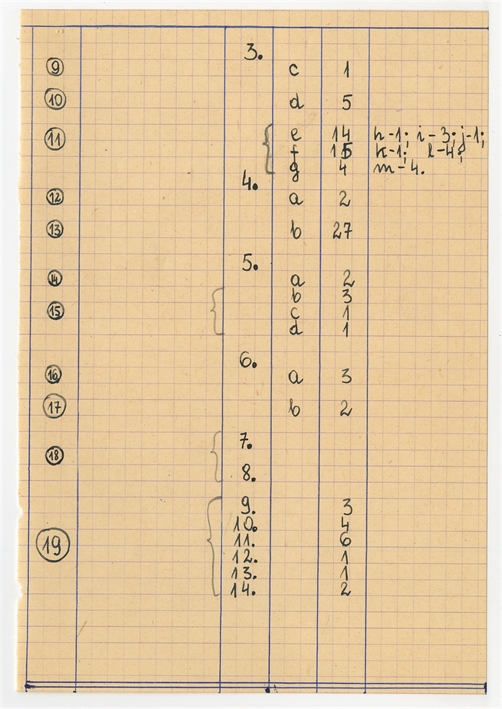 3.
⑨ c 1
⑩ d 5
⑪ e 14 h-1; i-3; j-1;
f 15 k-1; l-4;
g 4 m-4.
4.
⑫ a 2
⑬ b 27
5.
⑭ a 2
b 3
⑮ c 1
d 1
6.
⑯ a 3
⑰ b 2
7.
⑱
8.
9. 3
10. 4
⑲ 11. 6
12. 1
13. 1
14. 2